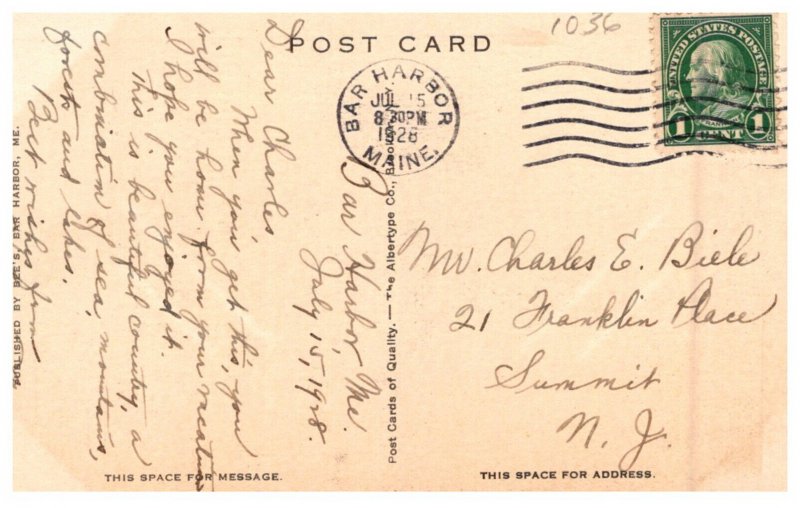 POST CARD
1036
UNITED STATES POSTAGE
1 CENT 1
BAR HARBOR
JUL 15
8 30PM
1928
MAINE.
Bar Harbor, Me.
July 15, 1928.
Dear Charles
When you get this, you
will be home from your vacation
I hope you enjoyed it.
This is beautiful country, a
combination of sea, mountains,
forests and lakes.
Best wishes from
Mr. Charles E. Biele
21 Franklin Place
Summit
N. J.
PUBLISHED BY BEE'S, BAR HARBOR, ME.
Post Cards of Quality. — The Albertype Co., Brooklyn,
THIS SPACE FOR MESSAGE.
THIS SPACE FOR ADDRESS.